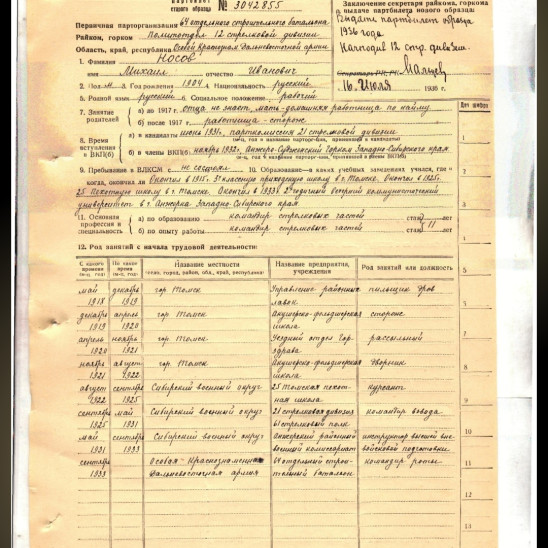 № 3042855
Заключение секретаря райкома, горкома
о выдаче партбилета нового образца:
Выдать партбилет образца
1936 года
Начподив 12 стр. дивизии.
Мальцев
16 Июля 1936 г.
Первичная парторганизация 64 отдельного строительного батальона
Райком, горком Политотдел 12 стрелковой дивизии
Область, край, республика Особой Краснознам. Дальневосточной армии
1. Фамилия Носов
имя Михаил отчество Иванович
2. Пол м. 3. Год рождения 1904 4. Национальность русский
5. Родной язык русский 6. Социальное положение рабочий
7. Занятие родителей
а) до 1917 г. отца не знает, мать-домашняя работница по найму
б) после 1917 г. работница-сторож
8. Время вступления в ВКП(б)
а) в кандидаты июнь 1931г., парткомиссия 21 стрелковой дивизии
б) в члены ВКП(б) ноябрь 1932г., Анжеро-Судженский Горком Западно-Сибирского края
9. Пребывание в ВЛКСМ с не состоял 10. Образование—в каких учебных заведениях учился, где
когда, окончил ли Окончил в 1915г. 3х классную приходскую школу в г. Томске. Окончил в 1925г.
25 Пехотную школу в г. Томске. Окончил в 1933г. 2х годичный вечерний коммунистический
университет в г. Анжерка Западно-Сибирского края
11. Основная профессия и специальность
а) по образованию командир стрелковых частей стаж лет
б) по опыту работы командир стрелковых частей стаж 11 лет
12. Род занятий с начала трудовой деятельности:
С какого времени (м-ц, год) По какое время (м-ц, год) Название местности (село, город, район, обл., край, республика) Название предприятия, учреждения Род занятий или должность
май 1918 декабрь 1919 гор. Томск Управление районных лавок пильщик дров
декабрь 1919 апрель 1920 гор. Томск Акушерско-фельдшерская школа сторож
апрель 1920 ноябрь 1921 гор. Томск Уездный отдел Горздрава рассыльный
ноябрь 1921 август 1922 гор. Томск Акушерско-фельдшерская школа дворник
август 1922 сентябрь 1925 Сибирский военный округ 25 Томская пехотная школа курсант
сентябрь 1925 май 1931 Сибирский военный округ 21 стрелковая дивизия 61 стрелковый полк командир взвода
май 1931 сентябрь 1933 Сибирский военный округ Анжерский районный военный комиссариат инструктор высшей вневойсковой подготовки
сентябрь 1933 Особая Краснознаменная Дальневосточная армия 64 отдельный строительный батальон командир роты